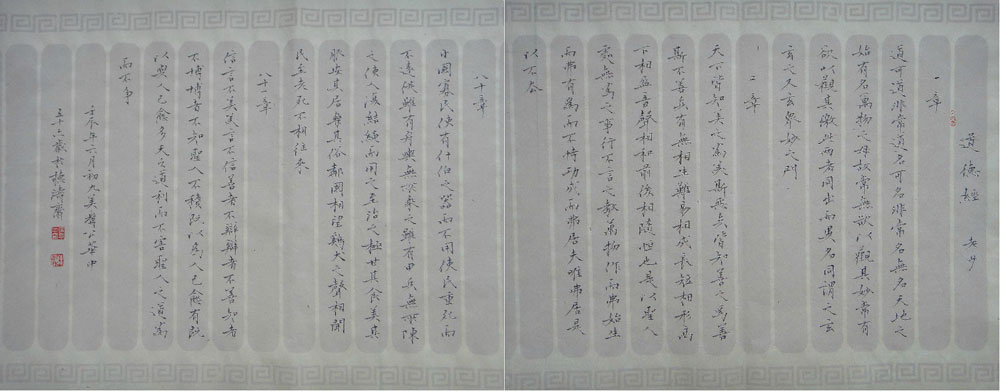 道德經 老子
一章
道可道非常道名可名非常名無名天地之
始有名萬物之母故常無欲以觀其妙常有
欲以觀其徼此兩者同出而異名同謂之玄
玄之又玄眾妙之門
二章
天下皆知美之為美斯惡矣皆知善之為善
斯不善矣有無相生難易相成長短相形高
下相盈音聲相和前後相隨恒也是以聖人
處無為之事行不言之教萬物作而弗始生
而弗有為而不恃功成而弗居夫唯弗居是
以不去
八十章
小國寡民使有什伯之器而不用使民重死而
不遠徙雖有舟輿無所乘之雖有甲兵無所陳
之使人復結繩而用之至治之極甘其食美其
服安其居樂其俗鄰國相望雞犬之聲相聞
民至老死不相往來
八十一章
信言不美美言不信善者不辯辯者不善知者
不博博者不知聖人不積既以為人己愈有既
以與人己愈多天之道利而不害聖人之道為
而不爭
壬辰年二月初九美群華中
五十六歲於濤齋